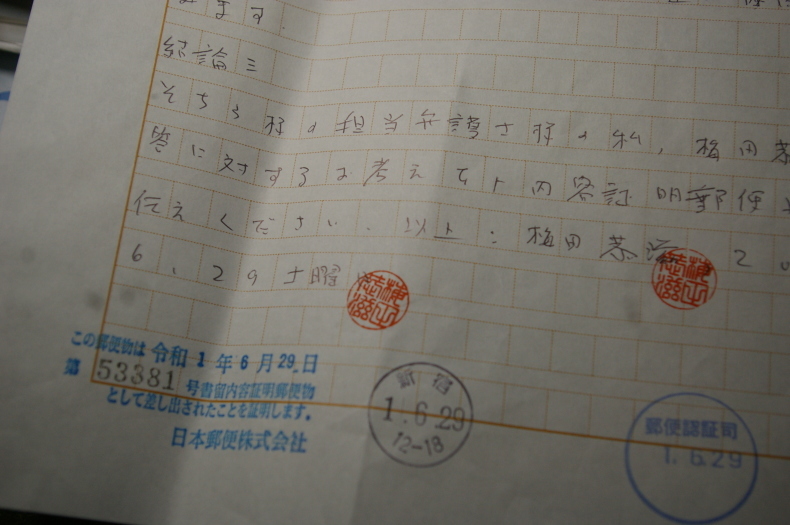 ます.
結論 =
そちら様の担当弁護士様の私, 梅田
答に対するお考えを 内容証明郵便
伝えください. 以上: 梅田
6. 29 土曜
この郵便物は 令和 1 年 6 月 29.日
第 53381 号書留内容証明郵便物
として差し出されたことを証明します。
日本郵便株式会社
新宿
1.6.29
12-18
郵便認証司
1.6.29